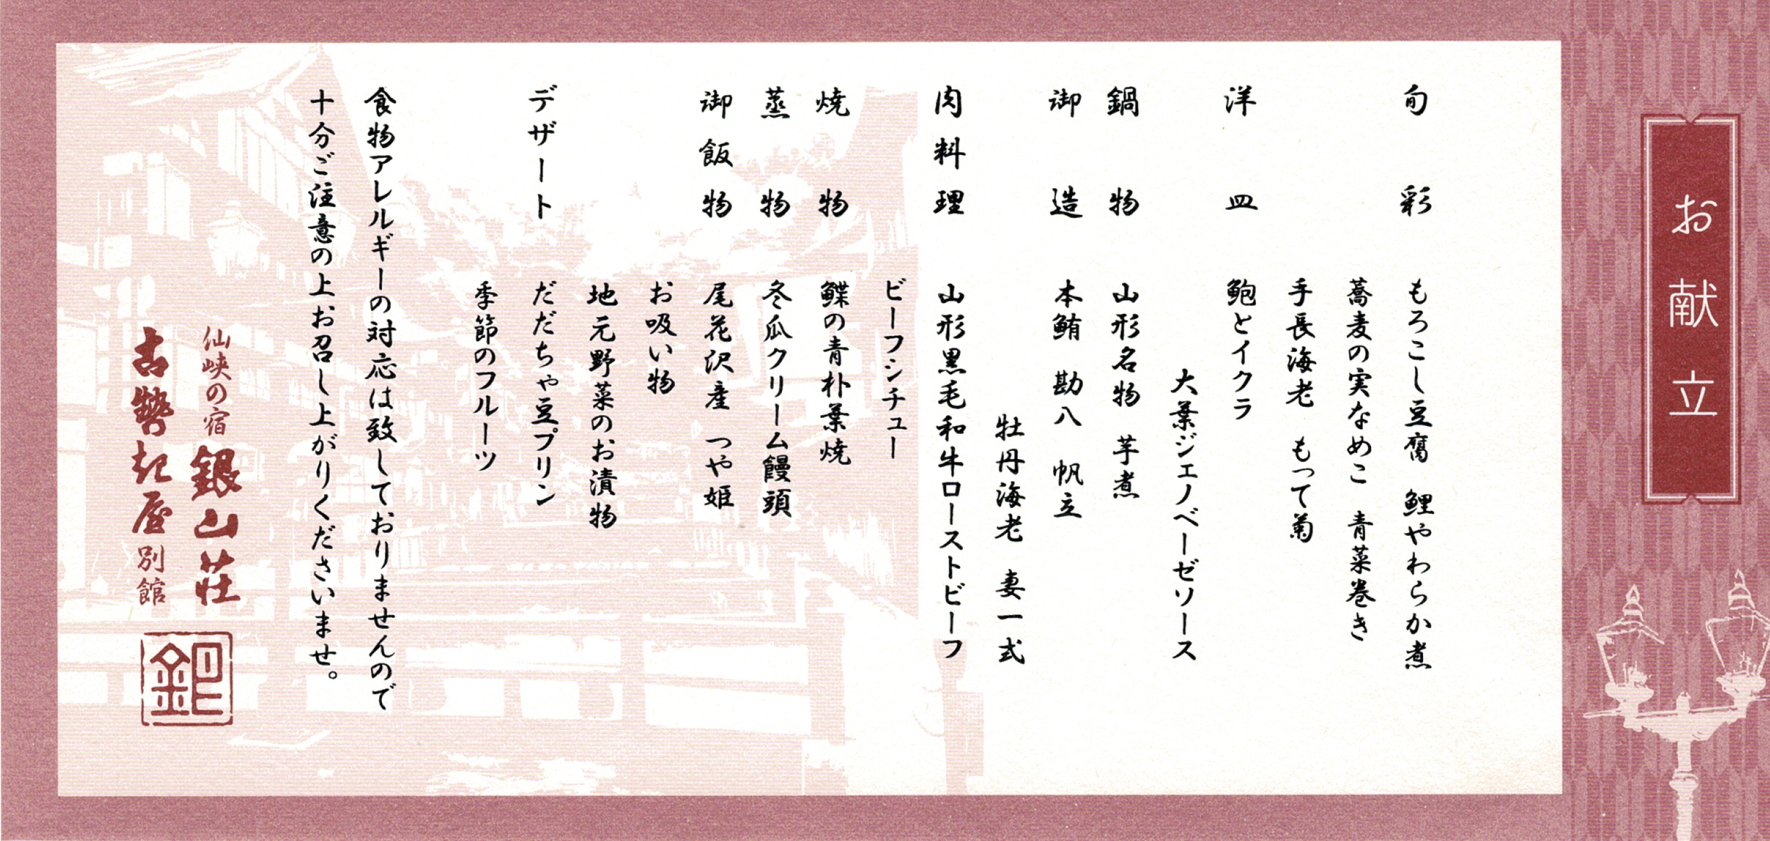 お献立
旬彩 もろこし豆腐 鯉やわらか煮
蕎麦の実なめこ 青菜巻き
手長海老 もって菊
洋皿 鮑とイクラ
大葉ジェノベーゼソース
鍋物 山形名物 芋煮
御造 本鮪 勘八 帆立
牡丹海老 妻一式
肉料理 山形黒毛和牛ローストビーフ
ビーフシチュー
焼物 鰈の青朴葉焼
蒸物 冬瓜クリーム饅頭
御飯物 尾花沢産 つや姫
お吸い物
地元野菜のお漬物
デザート だだちゃ豆プリン
季節のフルーツ
食物アレルギーの対応は致しておりませんので
十分ご注意の上お召し上がりくださいませ。
仙峡の宿 銀山荘
古勢起屋 別館